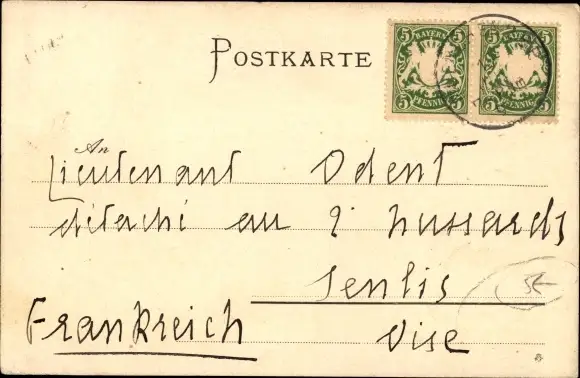 POSTKARTE
5 BAYERN 5
5 PFENNIG 5
5 BAYERN 5
5 PFENNIG 5
An
Lieutenant Odent
détaché au 2e hussards
Senlis
Oise
Frankreich